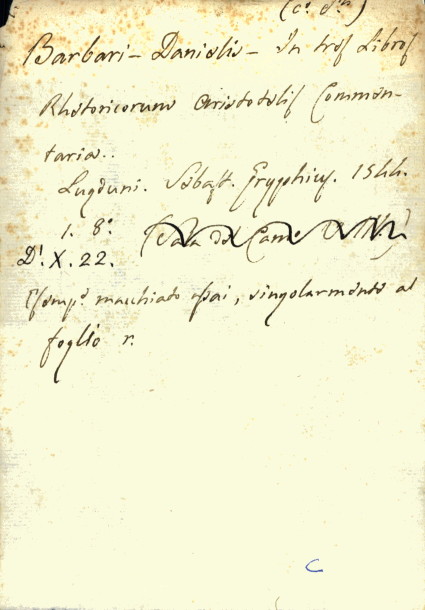 (c. 8.n)
Barbari - Danielis - In tres Libros
Rhetoricorum Aristotelis Commen-
taria..
Lugduni. Sebast. Gryphius. 1544.
1. 8.o
(Sala del Cam.
D'. X. 22.
Esemp.e macchiato assai, singolarmente al
foglio r.
C